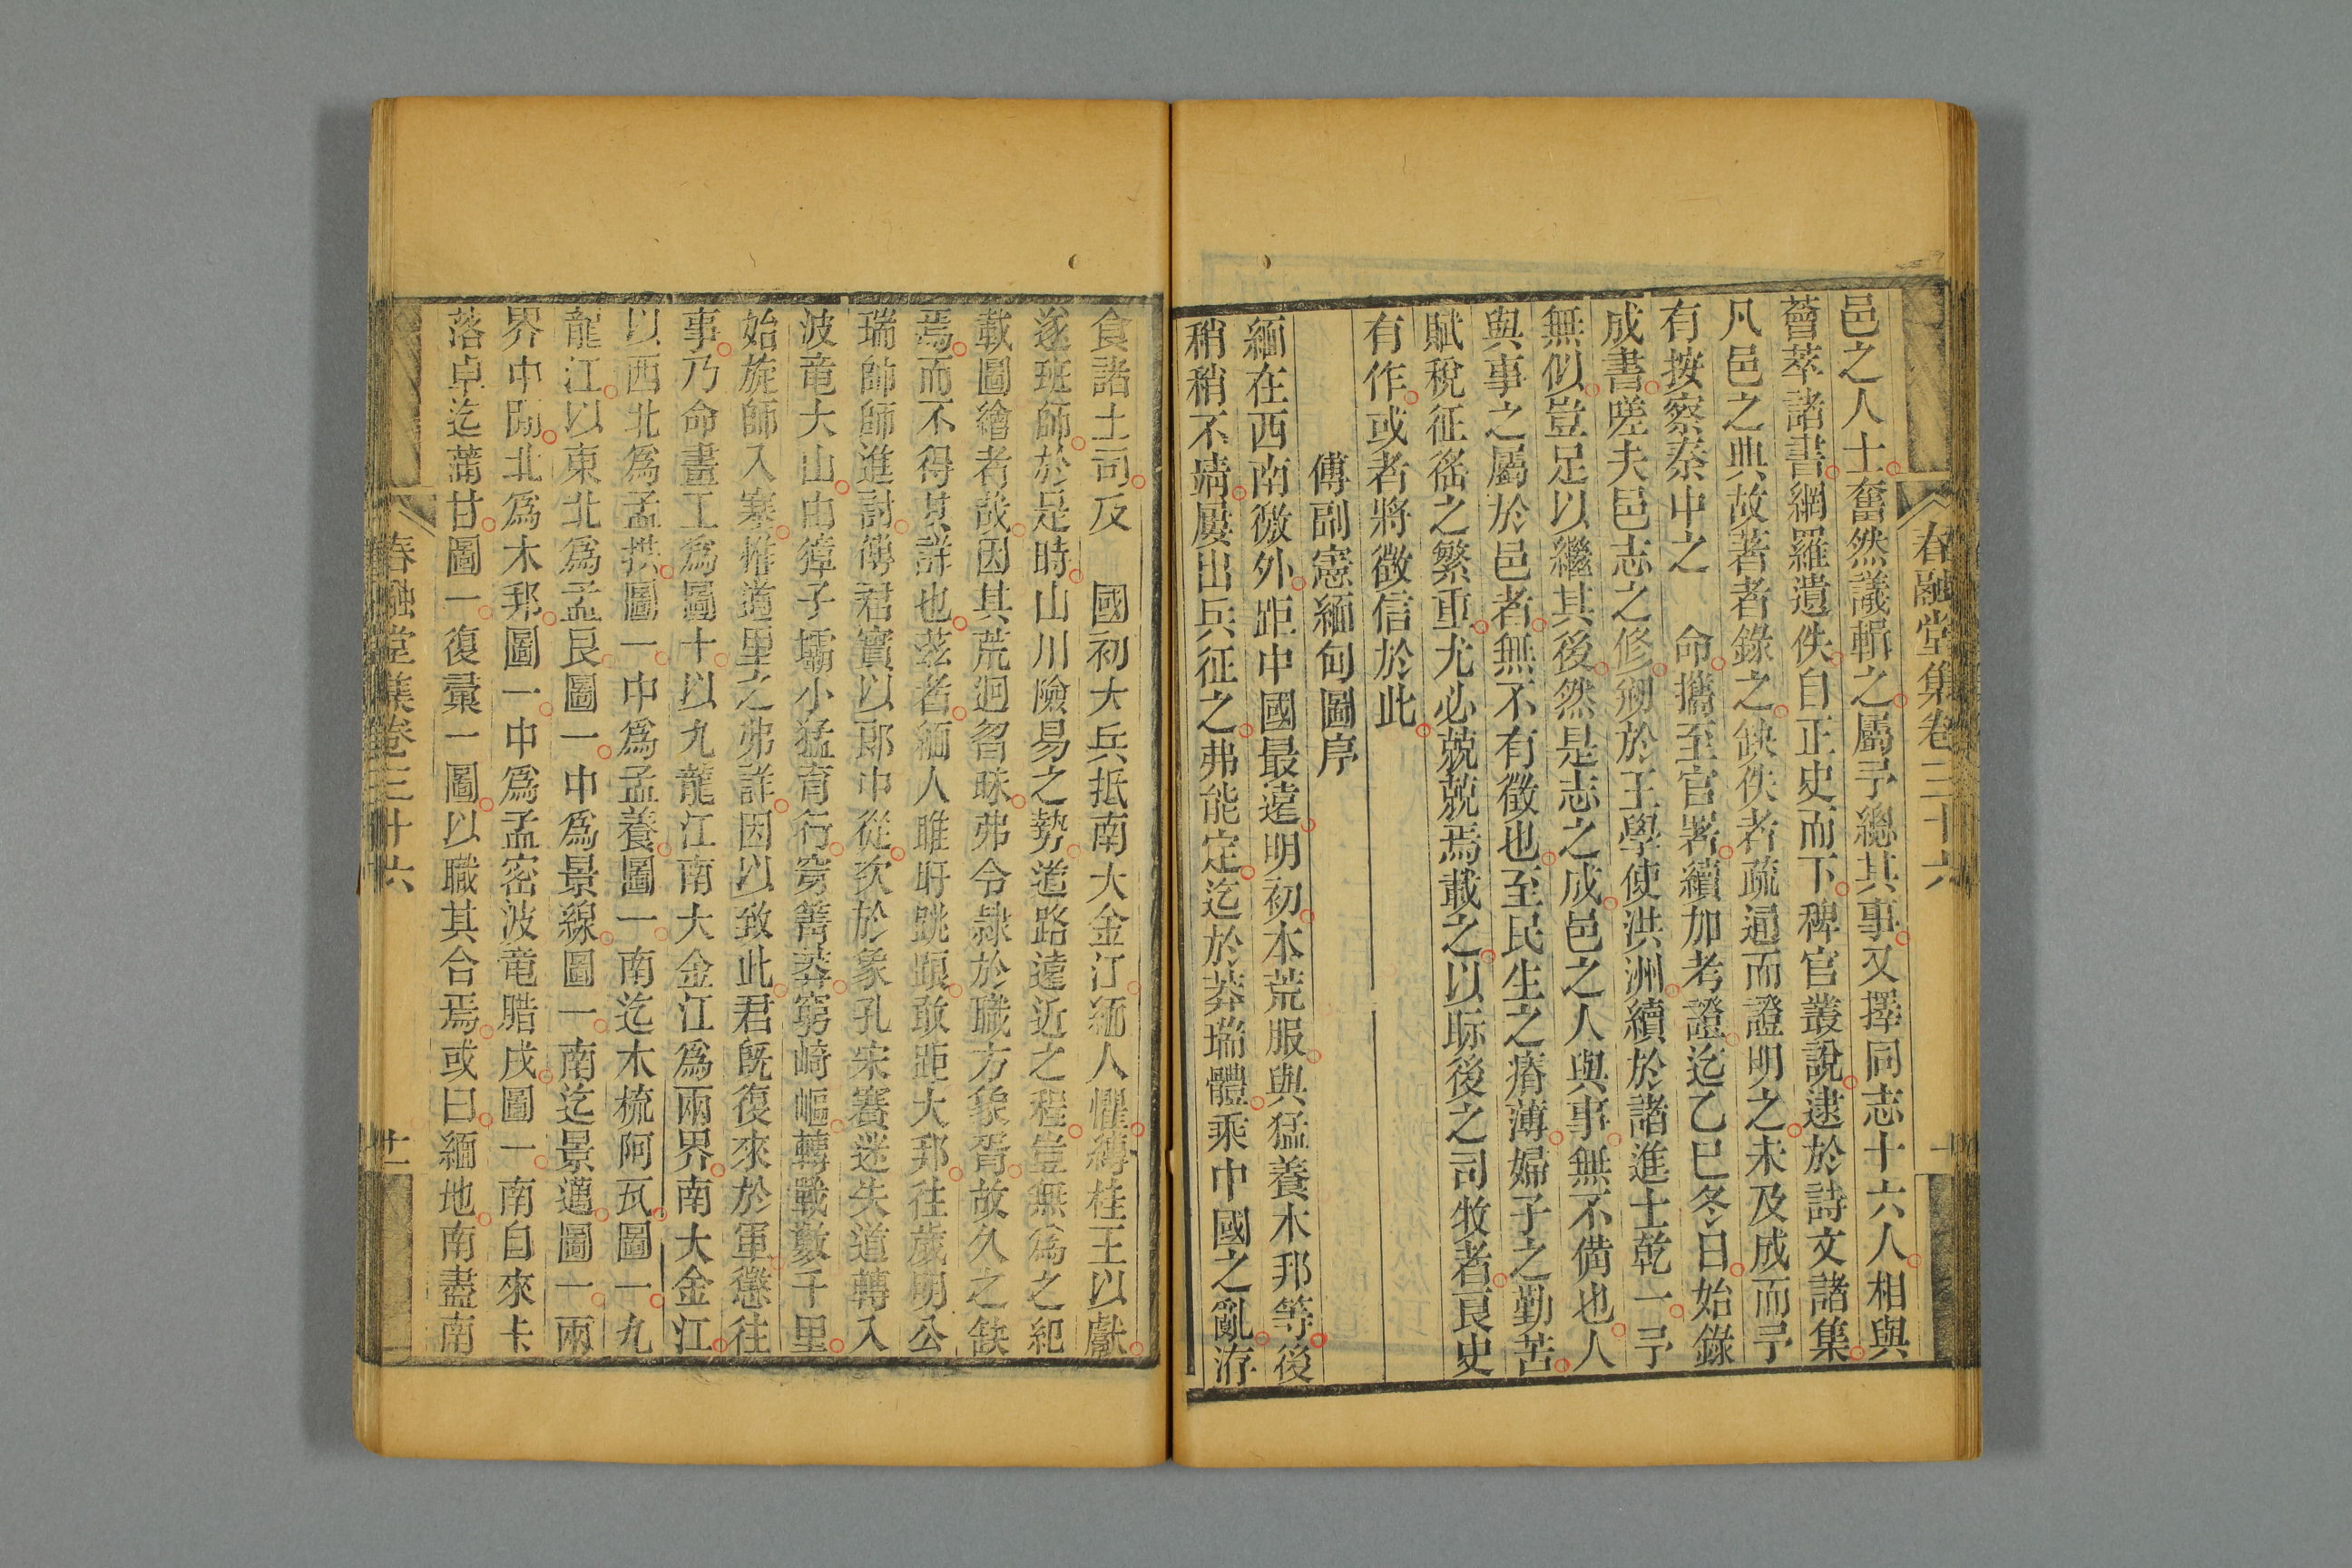 春融堂集卷三十六
邑之人士奮然議輯之屬予總其事又擇同志十六人相與
薈萃諸書網羅遺佚自正史而下稗官叢說逮於詩文諸集
凡邑之典故著者錄之缺佚者疏通而證明之未及成而予
有按察秦中之　命攜至官署續加考證迄乙巳冬日始錄
成書嗟夫邑志之修剏於王學使洪洲續於諸進士乾一予
無似豈足以繼其後然是志之成邑之人與事無不備也人
與事之屬於邑者無不有徵也至民生之瘠薄婦子之勤苦
賦稅征徭之繁重尤必兢兢焉載之以眎後之司牧者良史
有作或者將徵信於此
傅副憲緬甸圖序
緬在西南徼外距中國最遠明初本荒服與猛養木邦等後
稍稍不靖屢出兵征之弗能定迄於莽瑞體乘中國之亂洊
食諸土司反　國初大兵抵南大金江緬人懼縛桂王以獻
遂班師於是時山川險易之勢道路遠近之程豈無爲之紀
載圖繪者哉因其荒迴曶昧弗令隷於職方象胥故久之缺
焉而不得其詳也茲者緬人睢盱跳踉敢距大邦往歲明公
瑞帥師進討傅君實以郎中從攻於象孔宋賽迷失道轉入
波竜大山由獐子壩小猛育行窮箐莽窮崎嶇轉戰數千里
始旋師入塞惟道里之弗詳因以致此君旣復來於軍懲往
事乃命畫工爲圖十以九龍江南大金江爲兩界南大金江
以西北爲孟拱圖一中爲孟養圖一南迄木梳阿瓦圖一九
龍江以東北爲孟艮圖一中爲景線圖一南迄景邁圖一兩
界中間北爲木邦圖一中爲孟密波竜腊戌圖一南自來卡
落卓迄蒲甘圖一復彙一圖以職其合焉或曰緬地南盡南
春融堂集卷三十六
十一